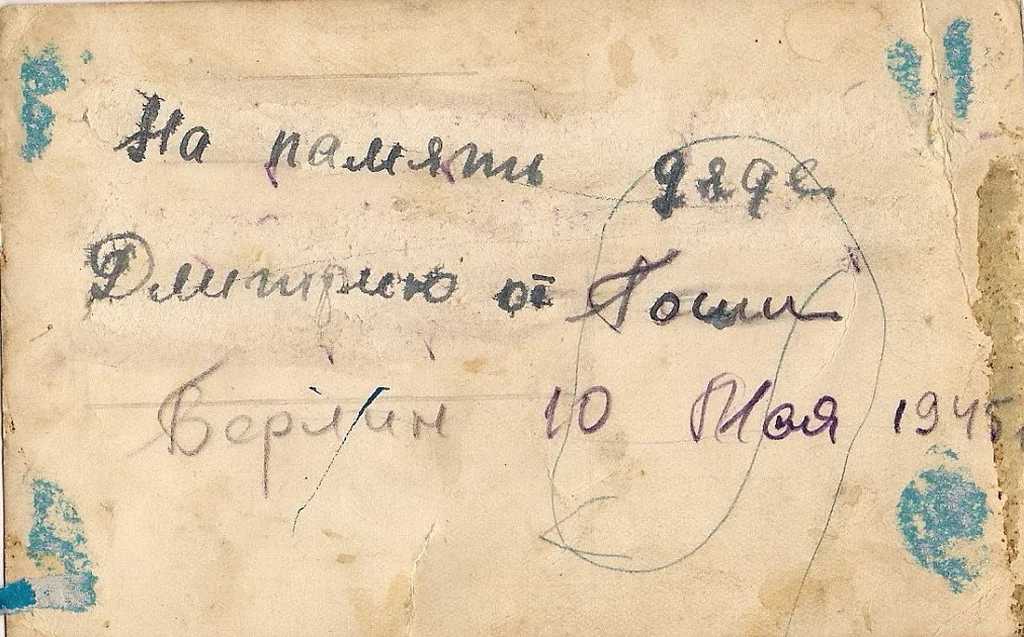 На память дяде
Дмитрию от Гоши
Берлин 10 Мая 1945